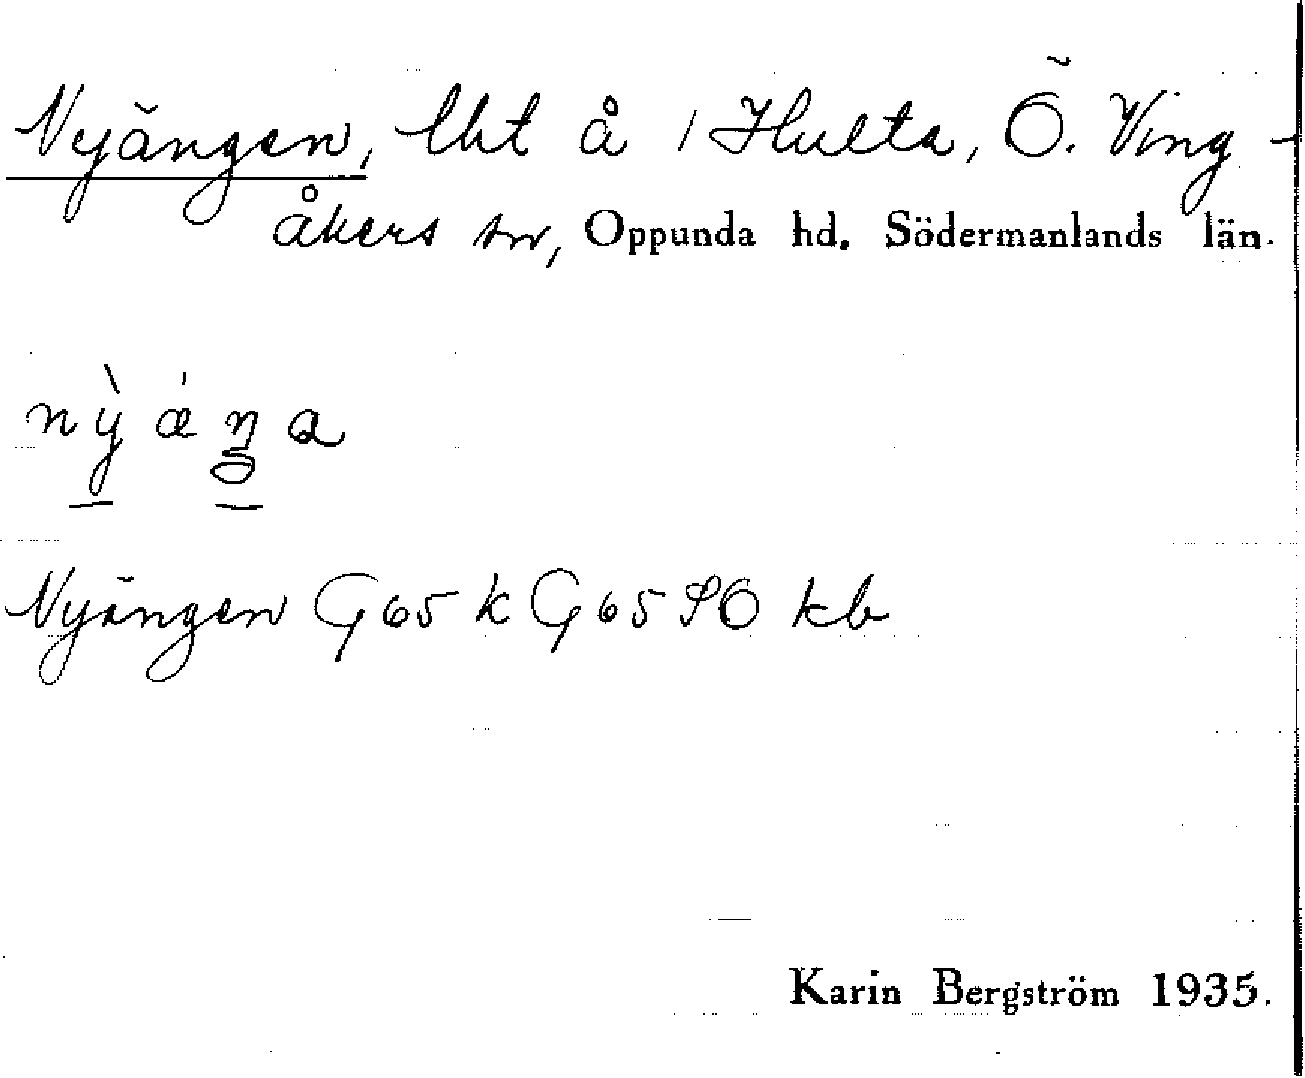 Nyängen, lht å 1 Hulta, Ö. Ving-
åkers sn, Oppunda hd. Södermanlands län.
nỳǽŋa
Nyängen G65 k G65 SO kb
Karin Bergström 1935.